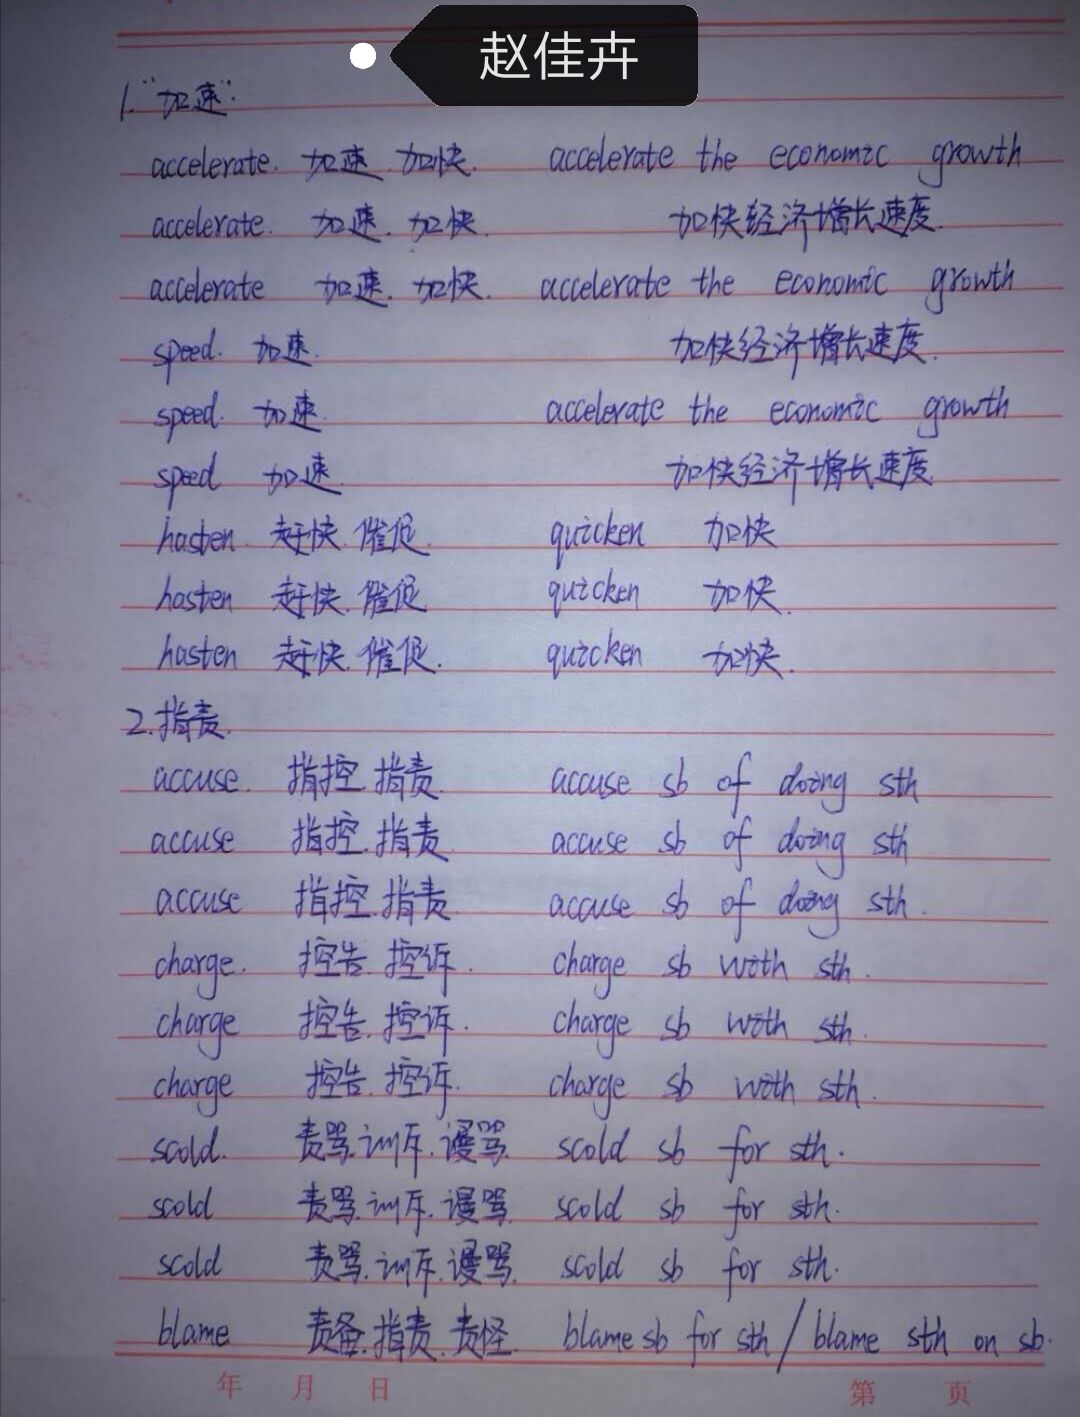 赵佳卉
1. "加速".
accelerate. 加速 加快. accelerate the economic growth
accelerate. 加速. 加快. 加快经济增长速度.
accelerate 加速. 加快. accelerate the economic growth
speed. 加速. 加快经济增长速度.
speed. 加速. accelerate the economic growth
speed 加速. 加快经济增长速度.
hasten. 赶快. 催促. quicken 加快
hasten 赶快. 催促. quicken 加快.
hasten 赶快. 催促. quicken 加快.
2. 指责.
accuse. 指控. 指责. accuse sb of doing sth
accuse 指控. 指责. accuse sb of doing sth
accuse 指控. 指责. accuse sb of doing sth.
charge. 控告. 控诉. charge sb with sth.
charge 控告. 控诉. charge sb with sth.
charge 控告. 控诉. charge sb with sth.
scold. 责骂. 训斥. 谩骂. scold sb for sth.
scold 责骂. 训斥. 谩骂. scold sb for sth.
scold 责骂. 训斥. 谩骂. scold sb for sth.
blame 责备. 指责. 责怪. blame sb for sth / blame sth on sb.
年 月 日 第 页